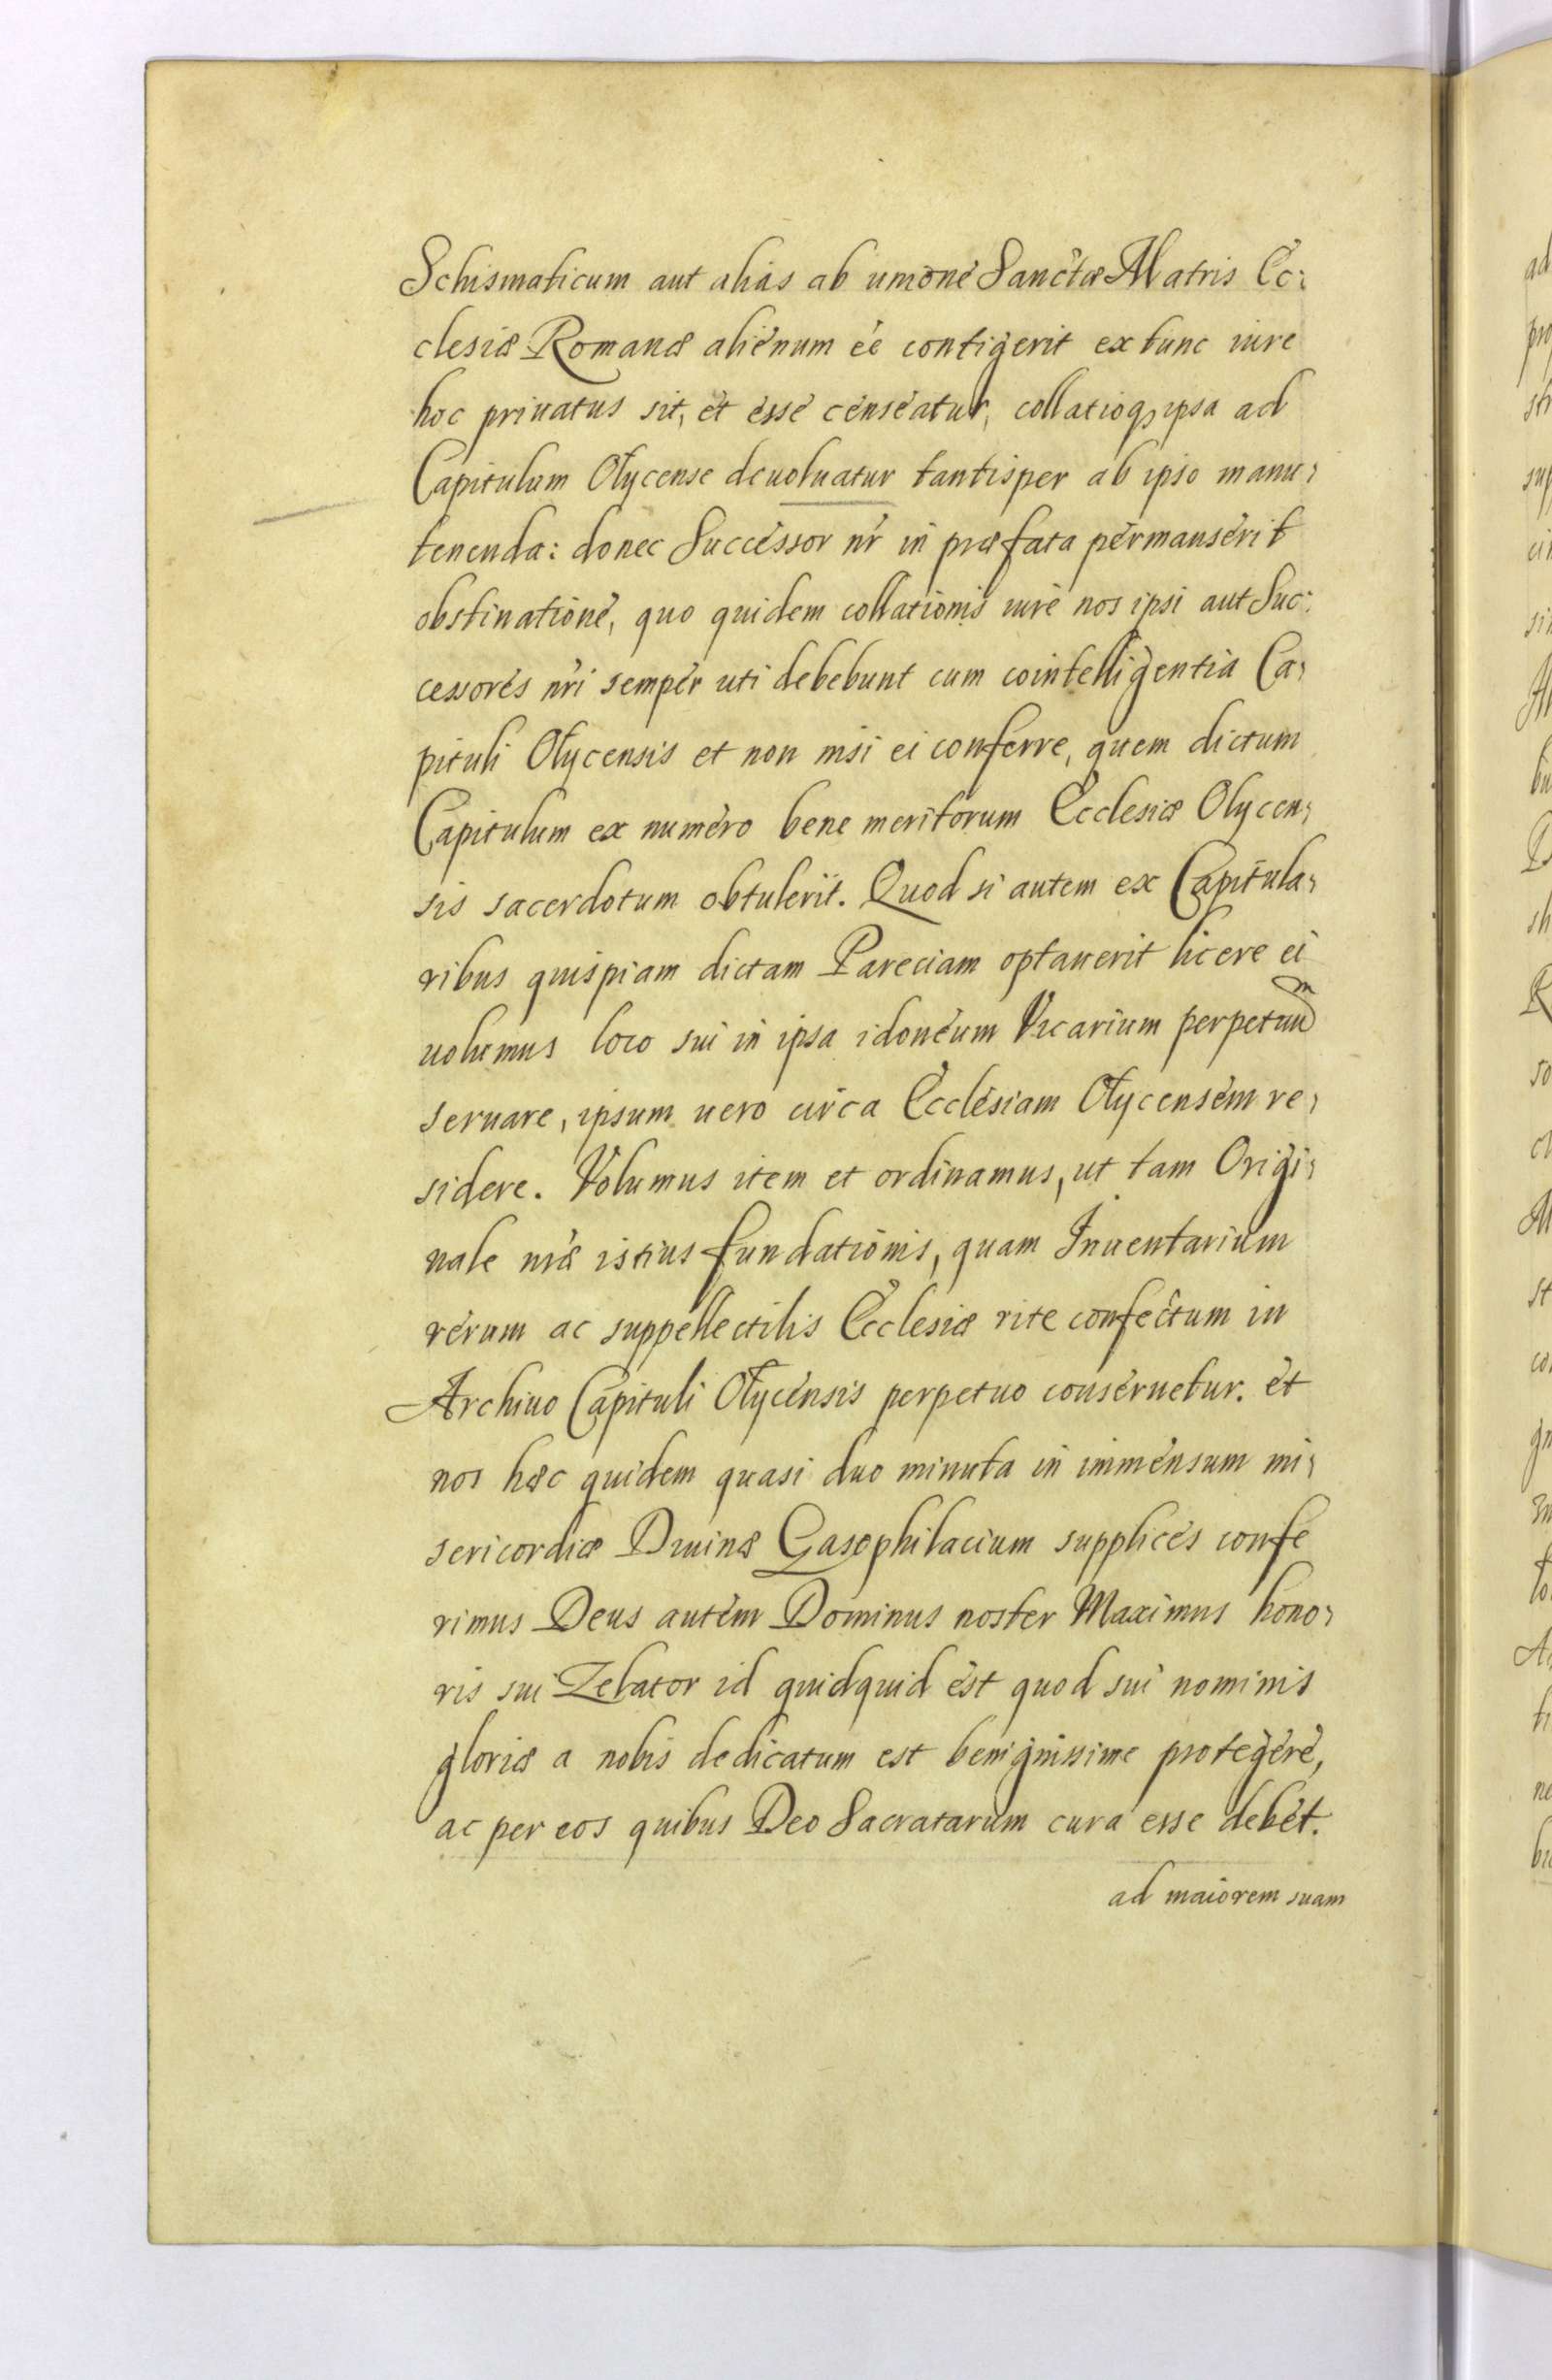 Schismaticum aut aliàs ab unione Sanctæ Matris Ec:
clesiæ Romanæ alienum éé contigerit ex tunc iure
hoc priuatus sit, et esse censeatur, collatioq, ipsa ad
Capitulum Olycense deuoluatur tantisper ab ipso manu,
tenenda: donec Successor nr̃ in præfata permanserit
obstinatione, quo quidem collationis iure nos ipsi aut Suc:
cessores nr̃i semper uti debebunt cum cointelligentia Ca,
pituli Olycensis et non nisi ei conferre, quem dictum
Capitulum ex numero bene meritorum Ecclesiæ Olycen,
sis sacerdotum obtulerit. Quod si autem ex Capitula,
ribus quispiam dictam Pareciam optauerit licere ei
uolumus loco sui in ipsa idoneum Vicarium perpetuum
seruare, ipsum uero circa Ecclesiam Olycensem re,
sidere. Volumus item et ordinamus, ut tam Origi,
nale nr̃æ istius fundationis, quam Inuentarium
rerum ac suppellectilis Ecclesiæ rite confectum in
Archiuo Capituli Olycensis perpetuo conseruetur. et
nos hæc quidem quasi duo minuta in immensum mi,
sericordiæ Diuinæ Gasophilacium supplices confe
rimus Deus autem Dominus noster Maximus hono,
ris sui Zelator id quidquid est quod sui nominis
gloriæ a nobis dedicatum est benignissime protegere,
ac per eos quibus Deo Sacratarum cura esse debet.
ad maiorem suam